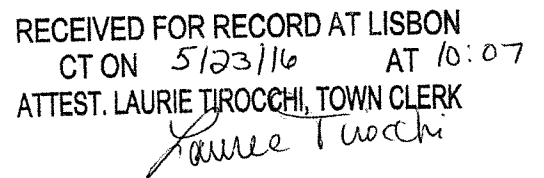 RECEIVED FOR RECORD AT LISBON
CT ON 5/23/16 AT 10:07
ATTEST. LAURIE TIROCCHI, TOWN CLERK
Laurie Tirocchi